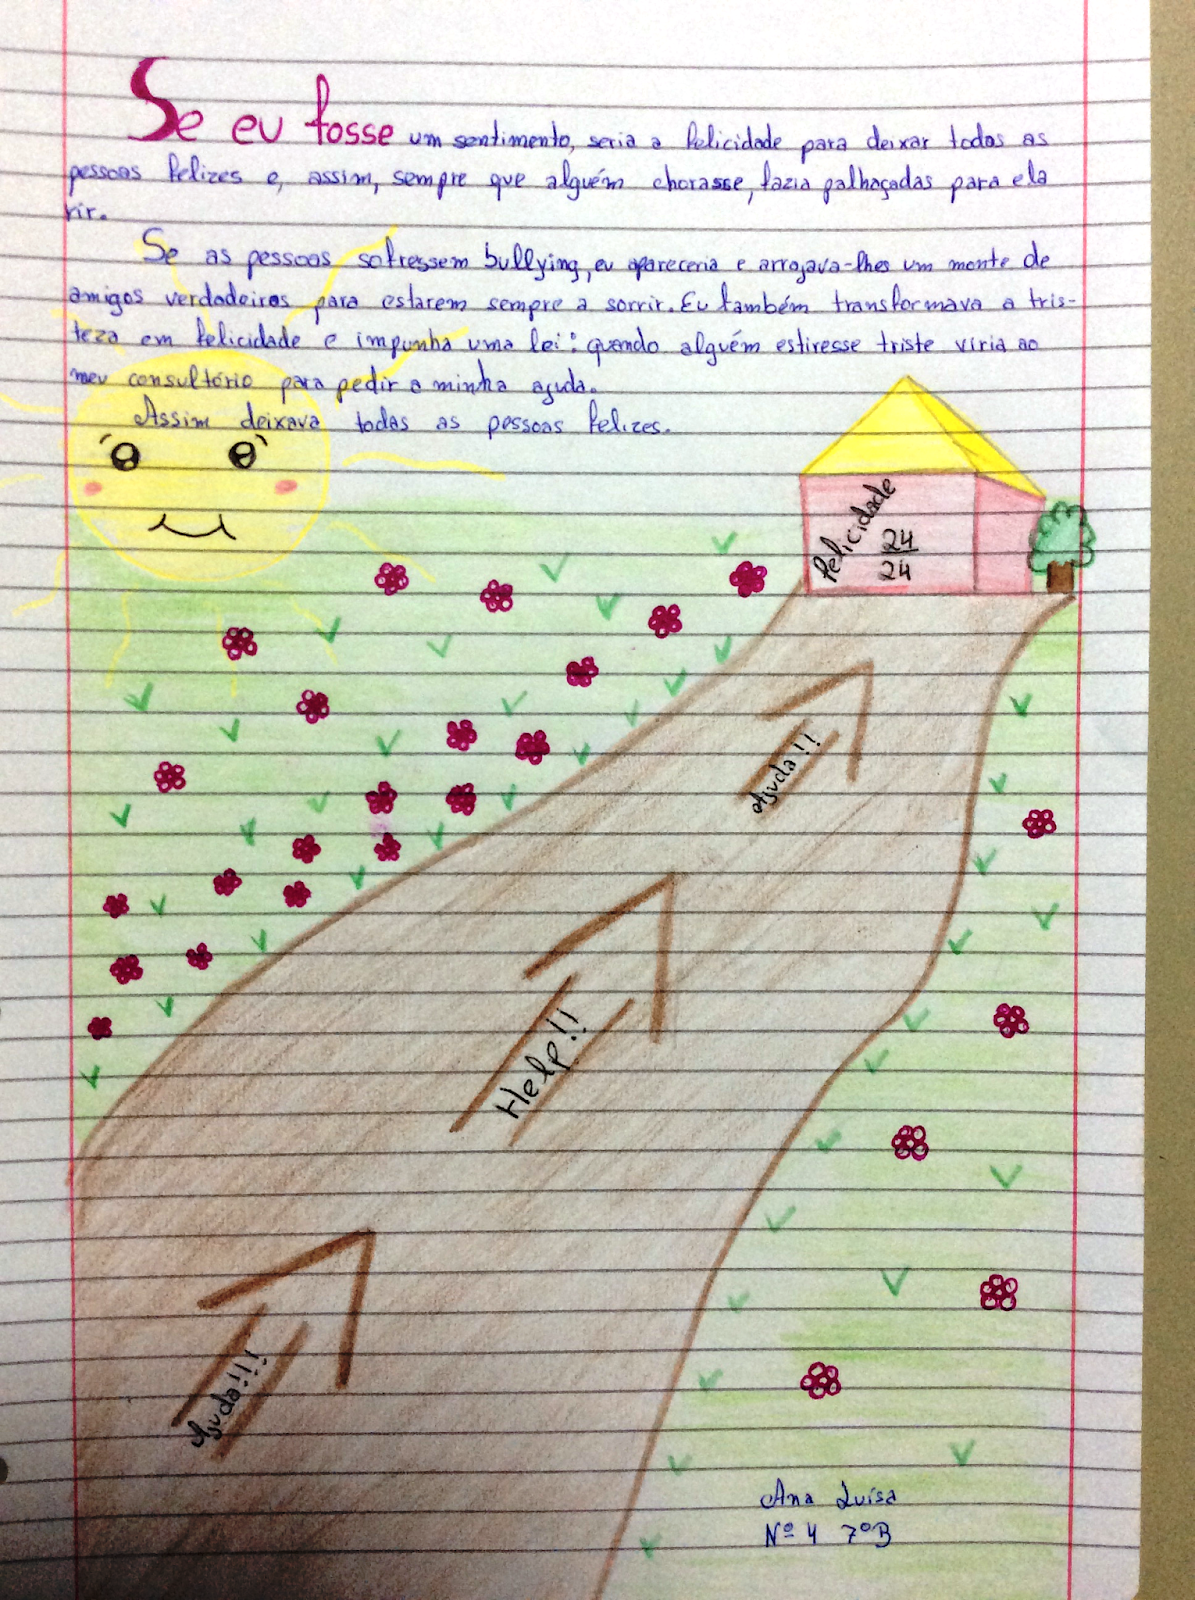 Se eu fosse um sentimento, seria a felicidade para deixar todas as
pessoas felizes e, assim, sempre que alguém chorasse, fazia palhaçadas para ela
rir.
Se as pessoas sofressem bullying, eu apareceria e arrojava-lhes um monte de
amigos verdadeiros para estarem sempre a sorrir. Eu também transformava a tris-
teza em felicidade e impunha uma lei: quando alguém estivesse triste viria ao
meu consultório para pedir a minha ajuda.
Assim deixava todas as pessoas felizes.
Felicidade
24
24
Ajuda!!
Help!!
Ajuda!!!
Ana Luísa
Nº 4 7ºB